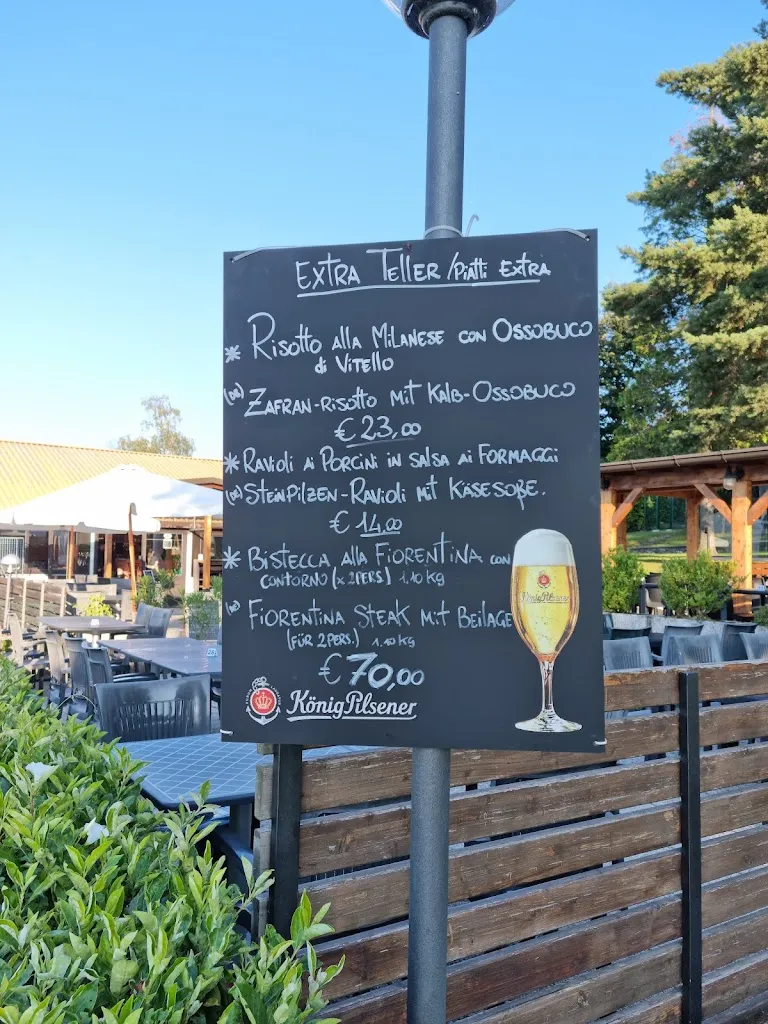 EXTRA TELLER / PIATTI EXTRA
* RISOTTO ALLA MILANESE CON OSSOBUCO
di VITELLO
ZAFRAN-RISOTTO MIT KALB-OSSOBUCO
€ 23,00
* RAVIOLI AI PORCINI IN SALSA AI FORMAGGI
STEINPILZEN-RAVIOLI MIT KÄSESOßE.
€ 14,00
* BISTECCA ALLA FIORENTINA CON
CONTORNO (x 2PERS) 1.10 kg
FIORENTINA STEAK MIT BEILAGE
(FÜR 2PERS.) 1.10 kg
€ 70,00
König Pilsener
König Pilsener